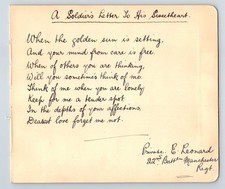 A Soldier's Letter To His Sweetheart.
When the golden sun is setting,
And your mind from care is free
When of others you are thinking,
Will you sometimes think of me.
Think of me when you are lonely
Keep for me a tender spot
In the depths of your affections.
Dearest love forget me not.
Private. E. Leonard
Battn Manchester
Regt.